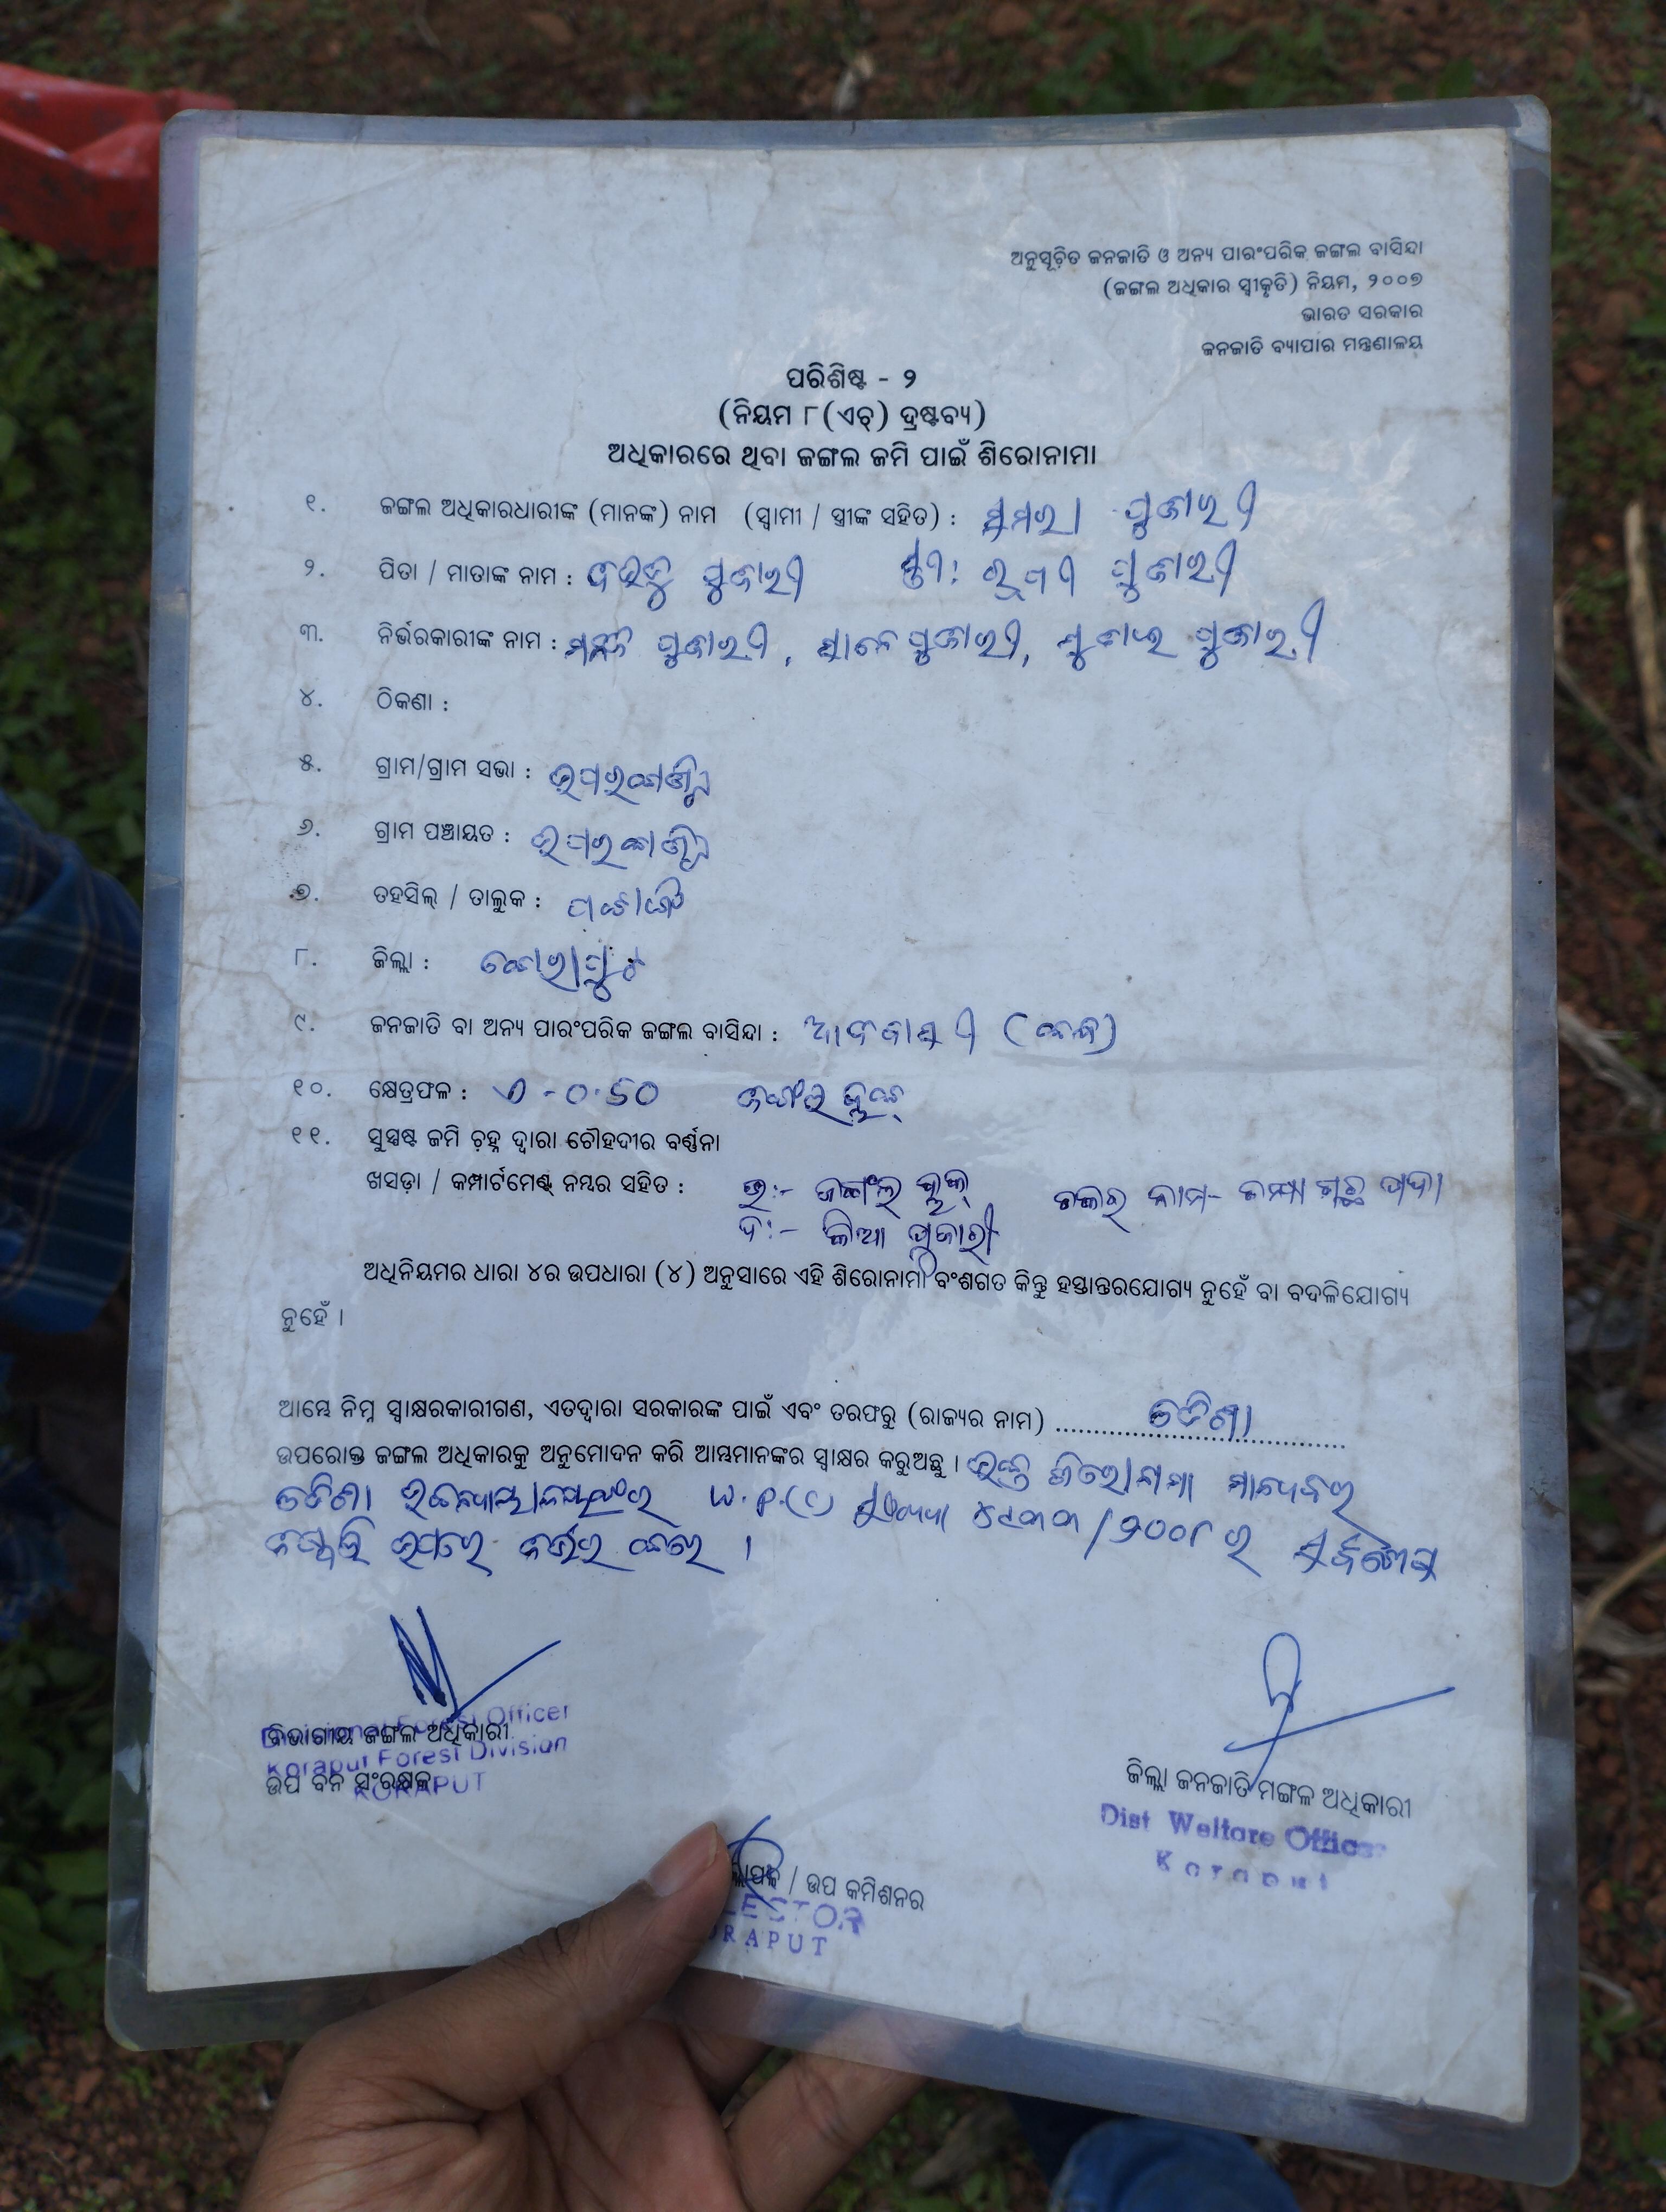 ଅନୁସୂଚିତ ଜନଜାତି ଓ ଅନ୍ୟ ପାରଂପରିକ ଜଙ୍ଗଲ ବାସିନ୍ଦା
(ଜଙ୍ଗଲ ଅଧିକାର ସ୍ୱୀକୃତି) ନିୟମ, ୨୦୦୭
ଭାରତ ସରକାର
ଜନଜାତି ବ୍ୟାପାର ମନ୍ତ୍ରଣାଳୟ
ପରିଶିଷ୍ଟ - ୨
(ନିୟମ ୮(ଏଚ୍) ଦ୍ରଷ୍ଟବ୍ୟ)
ଅଧିକାରରେ ଥିବା ଜଙ୍ଗଲ ଜମି ପାଇଁ ଶିରୋନାମା
୧. ଜଙ୍ଗଲ ଅଧିକାରଧାରୀଙ୍କ (ମାନଙ୍କ) ନାମ (ସ୍ୱାମୀ / ସ୍ତ୍ରୀଙ୍କ ସହିତ) : ସୁମରା ପୁଜାରୀ
୨. ପିତା / ମାତାଙ୍କ ନାମ : ପୁଜାରୀ ସ୍ତ୍ରୀ: ପୁଜାରୀ
୩. ନିର୍ଭରକାରୀଙ୍କ ନାମ : ପୁଜାରୀ, ପୁଜାରୀ, ପୁଜାରୀ
୪. ଠିକଣା :
୫. ଗ୍ରାମ/ଗ୍ରାମ ସଭା :
୬. ଗ୍ରାମ ପଞ୍ଚାୟତ :
୭. ତହସିଲ୍ / ତାଲୁକ : ପଟାଙ୍ଗି
୮. ଜିଲ୍ଲା : କୋରାପୁଟ
୯. ଜନଜାତି ବା ଅନ୍ୟ ପାରଂପରିକ ଜଙ୍ଗଲ ବାସିନ୍ଦା : ଆଦିବାସୀ
୧୦. କ୍ଷେତ୍ରଫଳ : ଏ -୦.୫୦ ଜଙ୍ଗଲ ବ୍ଲକ୍
୧୧. ସୁସ୍ପଷ୍ଟ ଜମି ଚିହ୍ନ ଦ୍ୱାରା ଚୌହଦୀର ବର୍ଣ୍ଣନା
ଖସଡ଼ା / କମ୍ପାର୍ଟମେଣ୍ଟ୍ ନମ୍ବର ସହିତ : ଉ:- ଜଙ୍ଗଲ ବ୍ଲକ୍ ଚକର ନାମ-
ଦ:- ପୁଜାରୀ
ଅଧିନିୟମର ଧାରା ୪ର ଉପଧାରା (୪) ଅନୁସାରେ ଏହି ଶିରୋନାମା ବଂଶଗତ କିନ୍ତୁ ହସ୍ତାନ୍ତରଯୋଗ୍ୟ ନୁହେଁ ବା ବଦଳିଯୋଗ୍ୟ
ନୁହେଁ ।
ଆମ୍ଭେ ନିମ୍ନ ସ୍ୱାକ୍ଷରକାରୀଗଣ, ଏତଦ୍ୱାରା ସରକାରଙ୍କ ପାଇଁ ଏବଂ ତରଫରୁ (ରାଜ୍ୟର ନାମ) ........ ଓଡିଶା ........
ଉପରୋକ୍ତ ଜଙ୍ଗଲ ଅଧିକାରକୁ ଅନୁମୋଦନ କରି ଆମ୍ଭମାନଙ୍କର ସ୍ୱାକ୍ଷର କରୁଅଛୁ । ଉକ୍ତ ଶିରୋନାମା ମାନ୍ୟବର
ଓଡିଶା ଉଚ୍ଚନ୍ୟାୟାଳୟଙ୍କର W.P.(C) ୪୯୩୩/୨୦୦୮ ର
ନିଷ୍ପତ୍ତି ଉପରେ ନିର୍ଭର କରେ ।
ବିଭାଗୀୟ ଜଙ୍ଗଲ ଅଧିକାରୀ
Divisional Forest Officer
Korapur Forest Division
ଉପ ବନ ସଂରକ୍ଷକ
KORAPUT
ଜିଲ୍ଲା ଜନଜାତି ମଙ୍ଗଳ ଅଧିକାରୀ
Dist Welfare Officer
Koraput
/ ଉପ କମିଶନର
LECTOR
ORAPUT